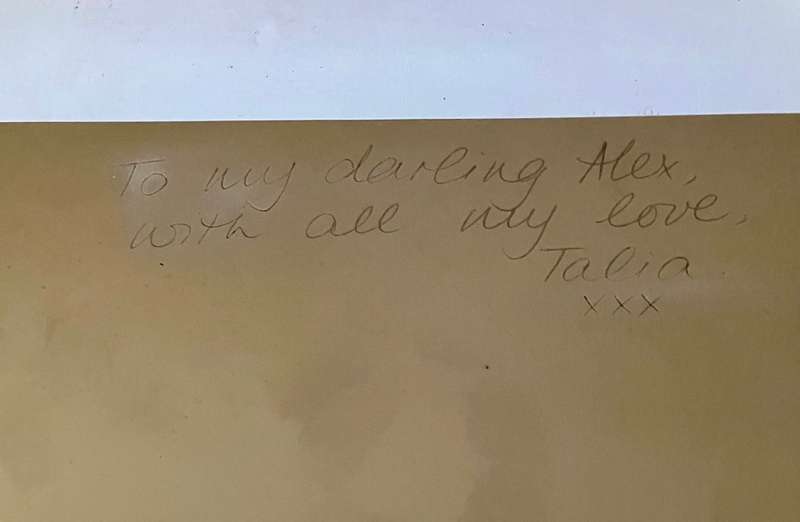 To my darling Alex,
with all my love,
Talia.
xxx